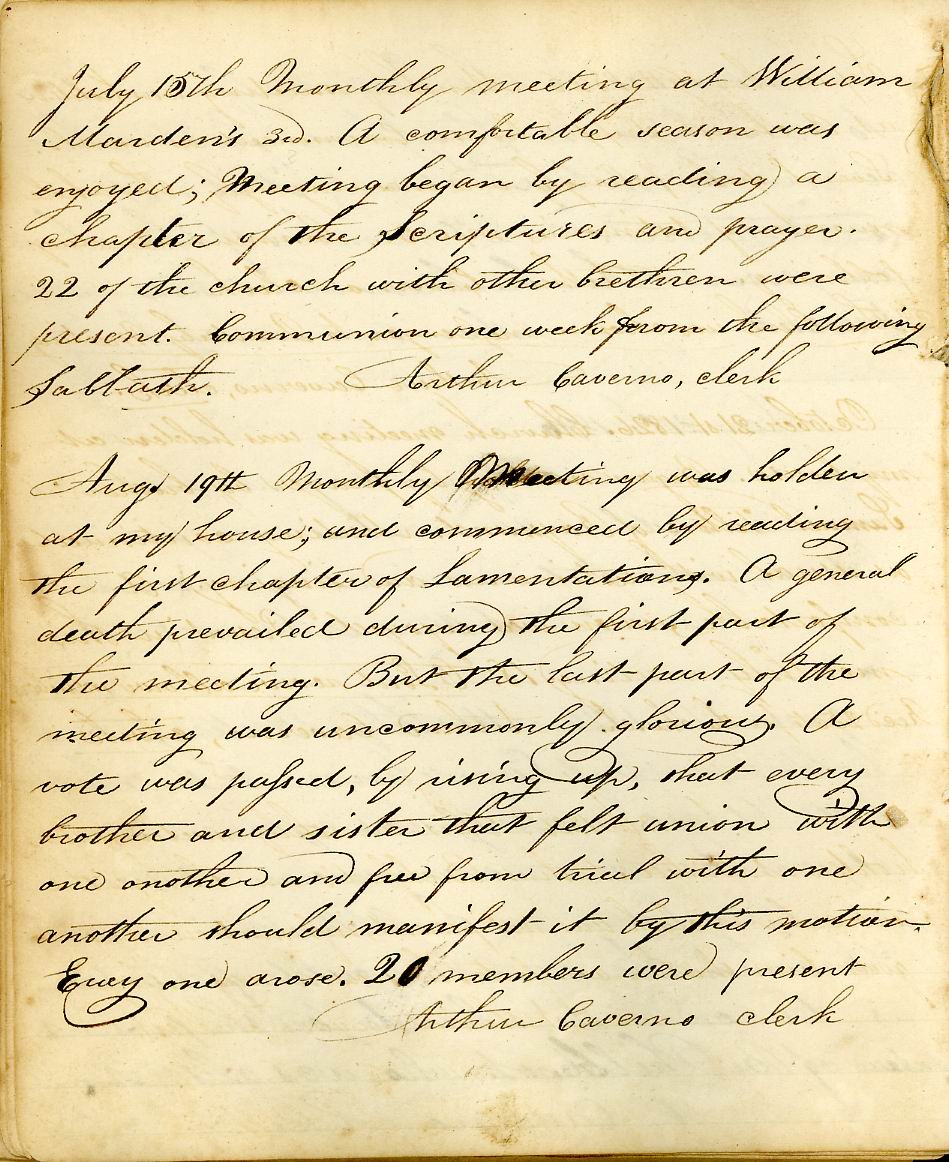 July 15th Monthly meeting at William
Marden's 3rd. A comfortable season was
enjoyed; Meeting began by reading a
chapter of the Scriptures and prayer.
22 of the church with other brethren were
present. Communion one week from the following
Sabbath. Arthur Caverno, clerk
Aug. 19th Monthly Meeting was holden
at my house; and commenced by reading
the first chapter of Lamentations. A general
death prevailed during the first part of
the meeting. But the last part of the
meeting was uncommonly glorious. A
vote was passed, by rising up, that every
brother and sister that felt union with
one onother and free from trial with one
another should manifest it by this motion.
Every one arose. 20 members were present
Arthur Caverno clerk